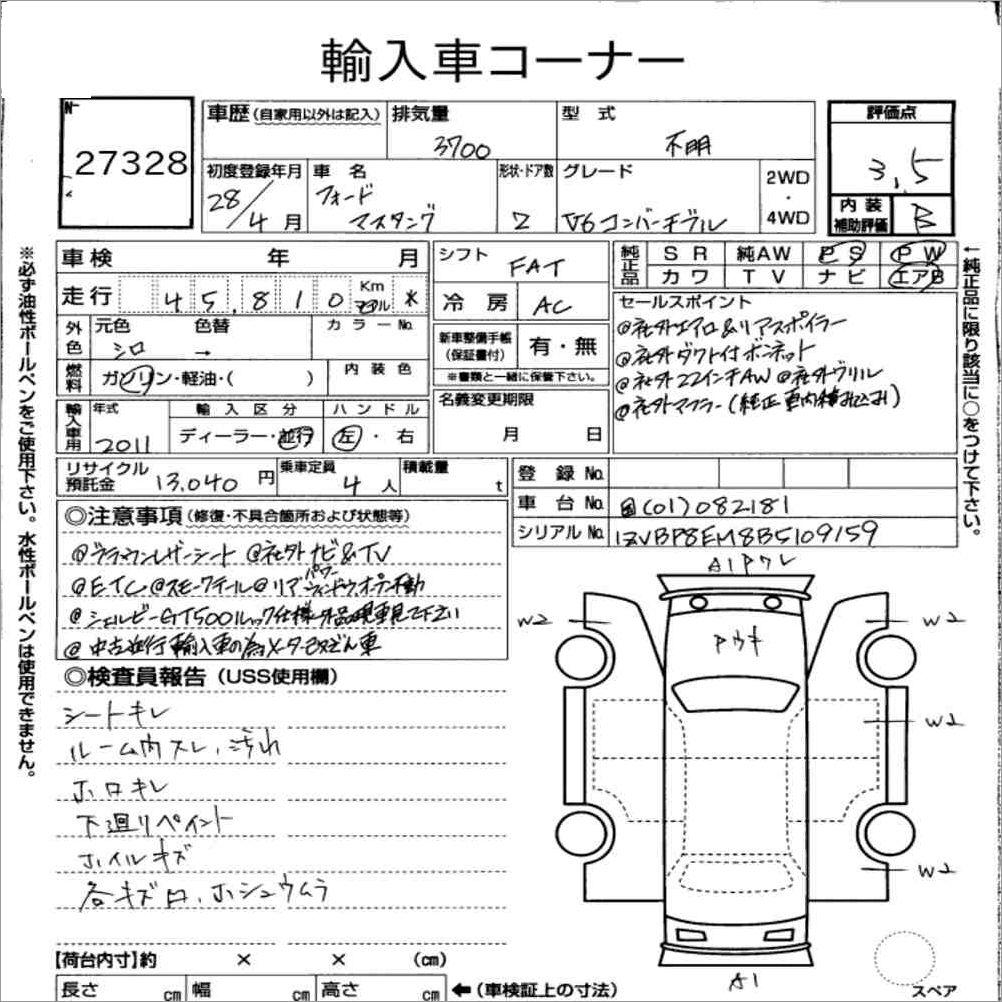 輸入車コーナー
27328
車歴(自家用以外は記入) 排気量 3700 型式 不明 評価点 3.5
初度登録年月 28/4月 車名 フォード マスタング 形状・ドア数 2 グレード V6 コンバーチブル 2WD・4WD 内装補助評価 B
※必ず油性ボールペンをご使用下さい。水性ボールペンは使用できません。
車検 年 月 シフト FAT 純正品 SR 純AW PS PW
カワ TV ナビ エアB
走行 45,810 Km マイル 冷房 AC
外色 元色 シロ 色替 → カラーNo.
新車整備手帳(保証書付) 有・無
※書類と一緒に保管下さい。
燃料 ガソリン・軽油・( ) 内装色
輸入車用 年式 2011 輸入区分 ディーラー・並行 ハンドル 左・右
名義変更期限 月 日
セールスポイント
@社外エアロ&リアスポイラー
@社外ダクト付ボンネット
@社外22インチAW @社外グリル
@社外マフラー(純正車内積み込み)
←純正品に限り該当に○をつけて下さい。
リサイクル預託金 13.040円 乗車定員 4人 積載量 t
登録No.
車台No. 国(01)082181
シリアルNo. 1ZVBP8EM8B5109159
◎注意事項(修復・不具合箇所および状態等)
@ブラウンレザーシート @社外ナビ&TV
@ETC @スモークテール @リアパワーウィンドウオープン不動
@シェルビーGT500ルック仕様 現車見て下さい
@中古並行輸入車の為メーター改ざん車
◎検査員報告(USS使用欄)
シートキレ
ルーム内スレ、汚れ
ホロキレ
下廻りペイント
ホイルキズ
各キズ凹、ホシュウムラ
A1ワレ
W2 W2
ワウキ
W2
W2
A1
スペア
【荷台内寸】約 × × (cm)
長さ cm 幅 cm 高さ cm ←(車検証上の寸法)